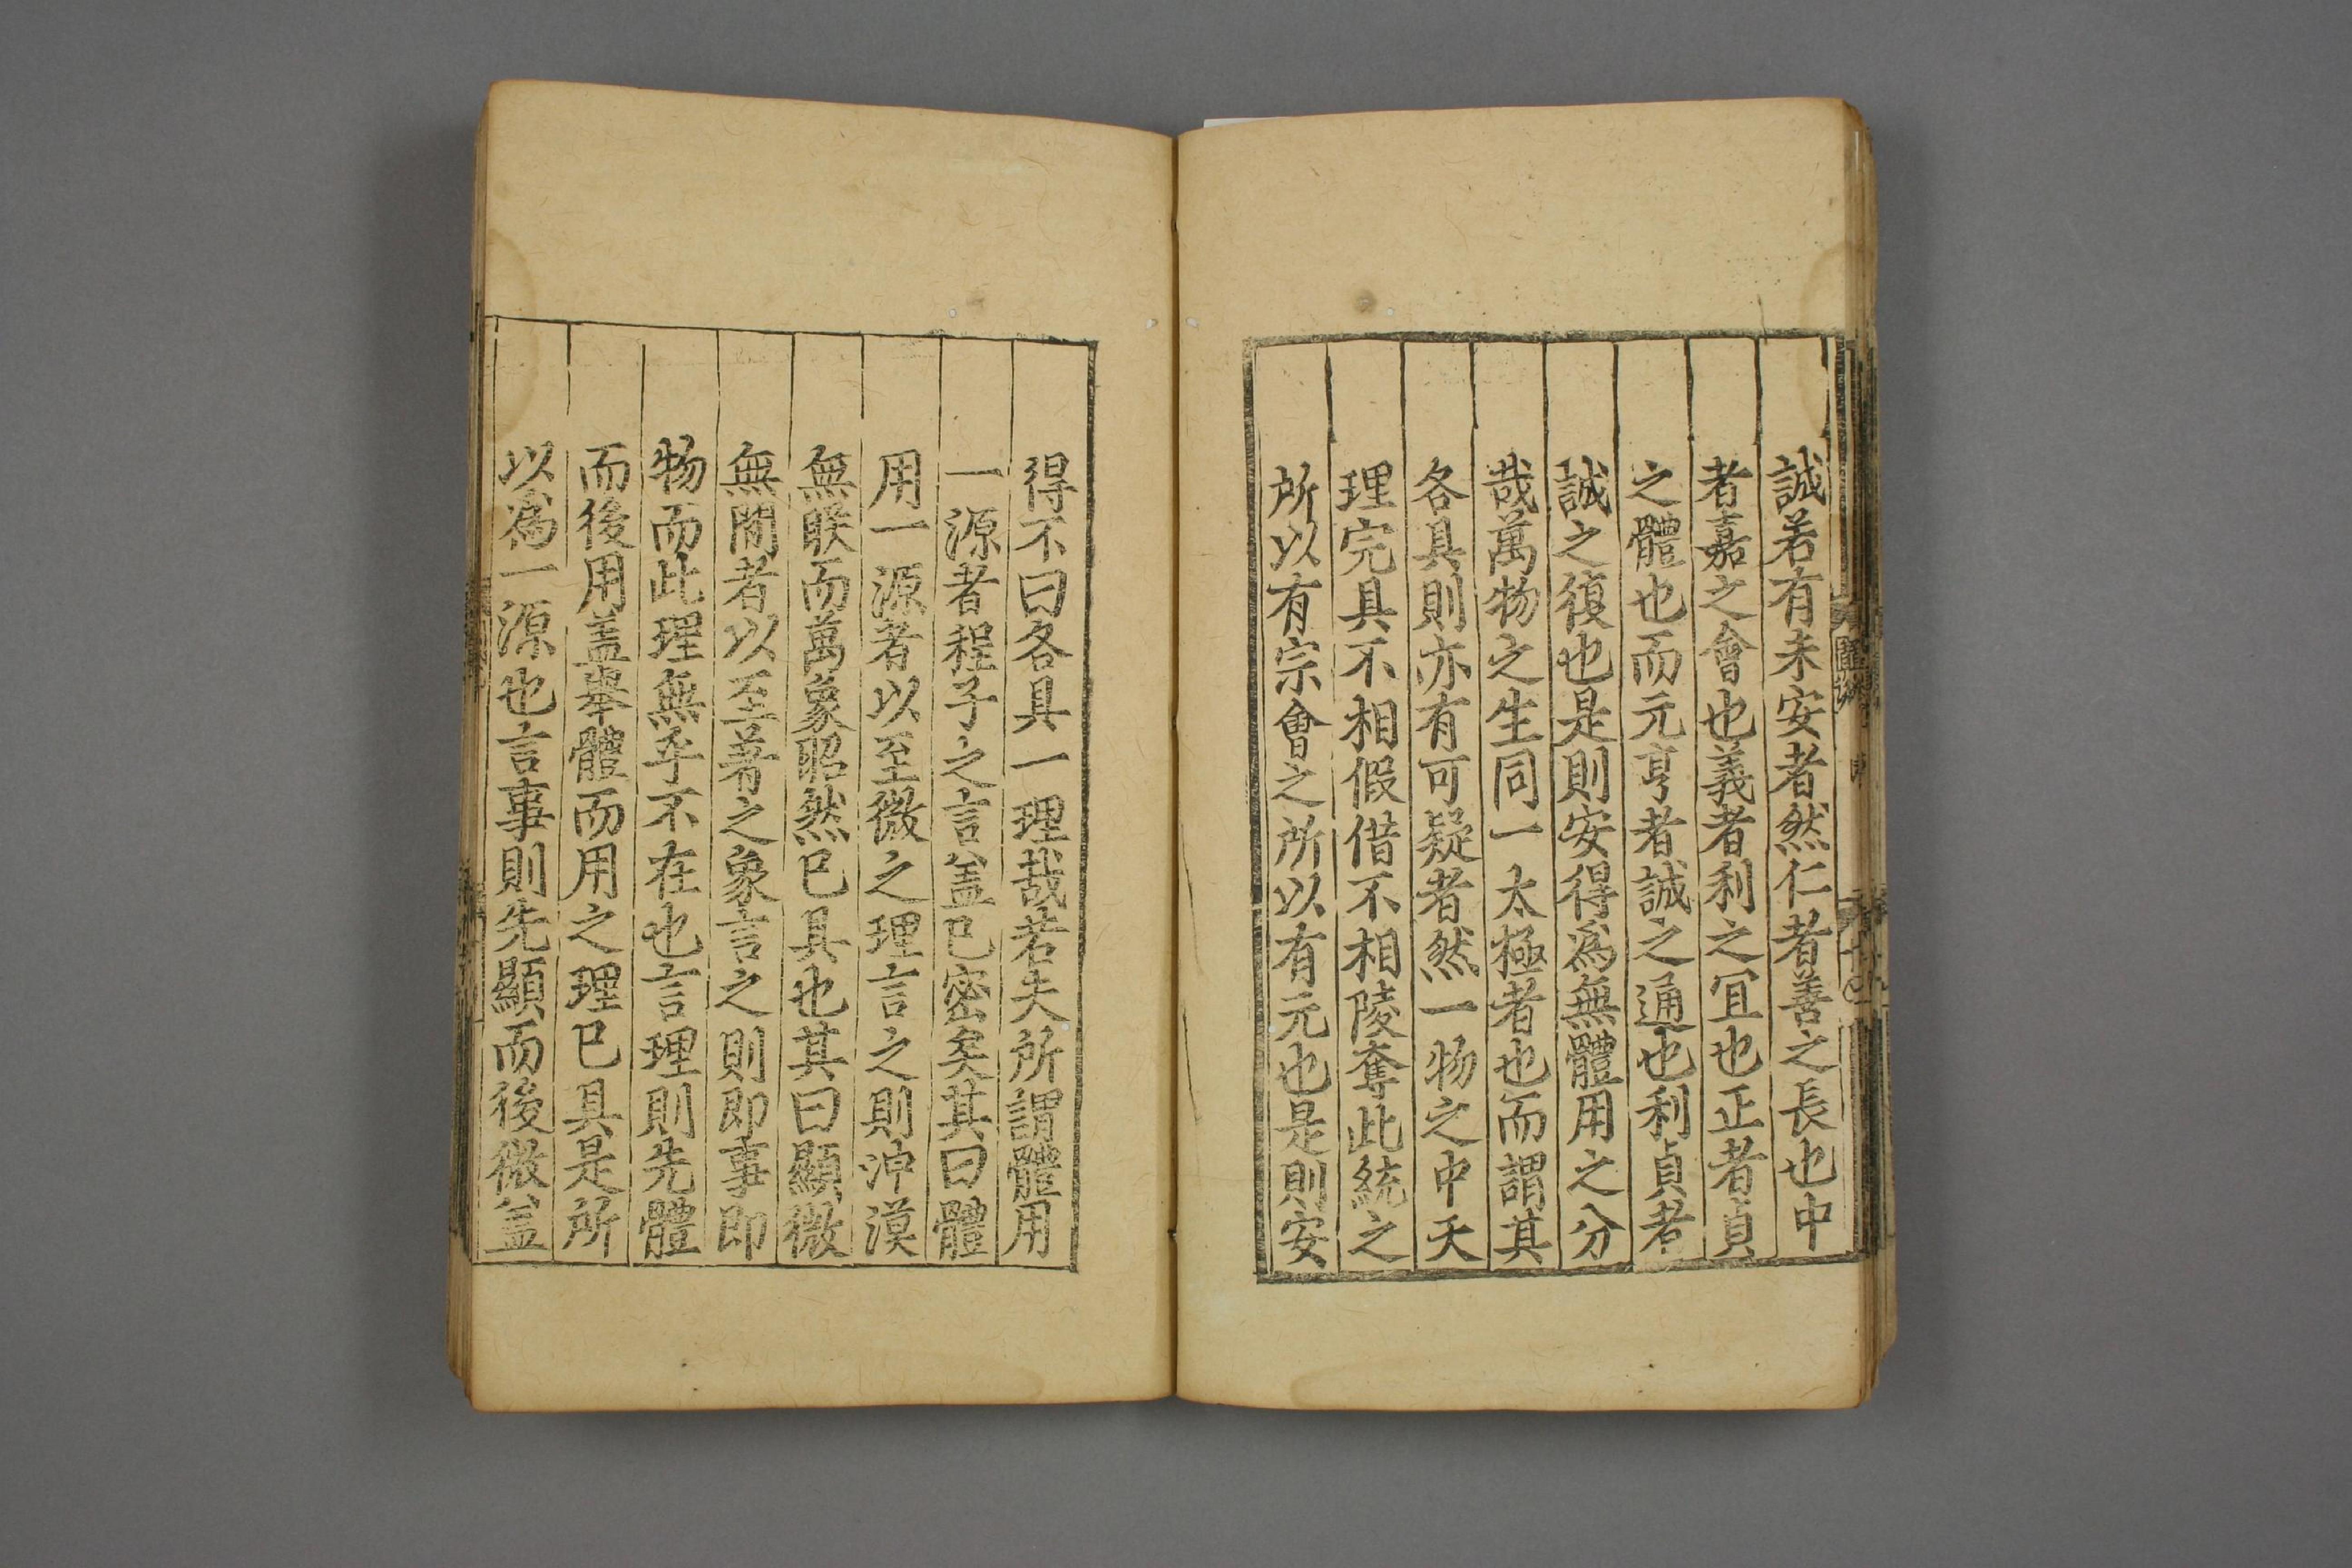 誠若有未安者然仁者善之長也中
者嘉之會也義者利之冝也正者貞
之體也而元亨者誠之通也利貞者
誠之復也是則安得爲無體用之分
哉萬物之生同一太極者也而謂其
各具則亦有可疑者然一物之中天
理完具不相假借不相陵奪此統之
所以有宗會之所以有元也是則安
得不曰各具一理哉若夫所謂體用
一源者程子之言盖已密矣其曰體
用一源者以至微之理言之則沖漠
無眹而萬象昭然已具也其曰顯微
無間者以至著之象言之則即事即
物而此理無乎不在也言理則先體
而後用盖舉體而用之理已具是所
以爲一源也言事則先顯而後微盖